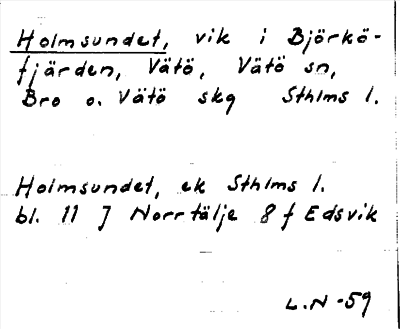 Holmsundet, vik i Björkö-
fjärden, Vätö, Vätö sn,
Bro o. Vätö skg Sthlms l.
Holmsundet, ek Sthlms l.
bl. 11 J Norrtälje 8 f Edsvik
L.N -59